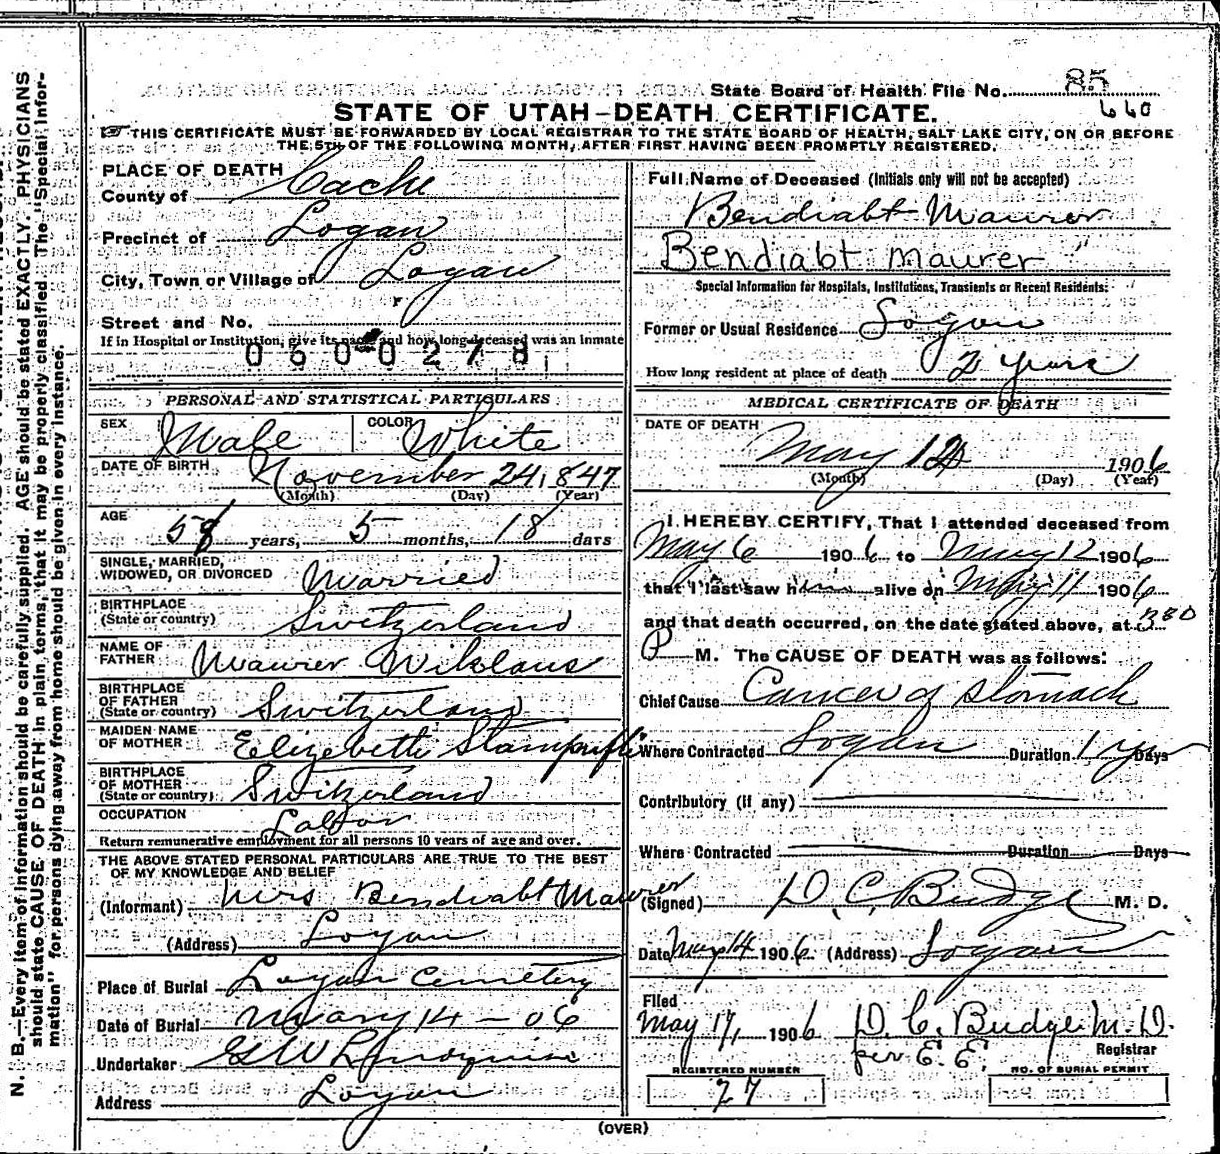 State Board of Health File No. 85
660
STATE OF UTAH–DEATH CERTIFICATE.
THIS CERTIFICATE MUST BE FORWARDED BY LOCAL REGISTRAR TO THE STATE BOARD OF HEALTH, SALT LAKE CITY, ON OR BEFORE
THE 5TH OF THE FOLLOWING MONTH, AFTER FIRST HAVING BEEN PROMPTLY REGISTERED.
PLACE OF DEATH
County of Cache
Precinct of Logan
City, Town or Village of Logan
Street and No.
If in Hospital or Institution, give its name and how long deceased was an inmate
0600278
PERSONAL AND STATISTICAL PARTICULARS
SEX Male COLOR White
DATE OF BIRTH November 24, 1847
(Month) (Day) (Year)
AGE 58 years, 5 months, 18 days
SINGLE, MARRIED,
WIDOWED, OR DIVORCED Married
BIRTHPLACE
(State or country) Switzerland
NAME OF
FATHER Maurer Nikolaus
BIRTHPLACE
OF FATHER
(State or country) Switzerland
MAIDEN NAME
OF MOTHER Elizebeth Stampfli
BIRTHPLACE
OF MOTHER
(State or country) Switzerland
OCCUPATION Labor
Return remunerative employment for all persons 10 years of age and over.
THE ABOVE STATED PERSONAL PARTICULARS ARE TRUE TO THE BEST
OF MY KNOWLEDGE AND BELIEF
(Informant) Mrs Bendiabt Maurer
(Address) Logan
Place of Burial Logan Cemetery
Date of Burial May 14 - 06
Undertaker G W
Address Logan
Full Name of Deceased (Initials only will not be accepted)
Bendiabt Maurer
Bendiabt Maurer
Special Information for Hospitals, Institutions, Transients or Recent Residents:
Former or Usual Residence Logan
How long resident at place of death 2 years
MEDICAL CERTIFICATE OF DEATH
DATE OF DEATH
May 12 1906
(Month) (Day) (Year)
I HEREBY CERTIFY, That I attended deceased from
May 6 1906 to May 12 1906
that I last saw him alive on May 11 1906
and that death occurred, on the date stated above, at 330
P M. The CAUSE OF DEATH was as follows:
Chief Cause Cancer of Stomach
Where Contracted Logan Duration 1 yr Days
Contributory (if any)
Where Contracted Duration Days
(Signed) D. C. Budge M. D.
Date May 14 1906 (Address) Logan
Filed
May 17, 1906 D. C. Budge M. D.
per E. E. Registrar
REGISTERED NUMBER
27
NO. OF BURIAL PERMIT
(OVER)
N. B.—Every item of information should be carefully supplied. AGE should be stated EXACTLY. PHYSICIANS
should state CAUSE OF DEATH in plain terms, that it may be properly classified. The "Special Infor-
mation" for persons dying away from home should be given in every instance.